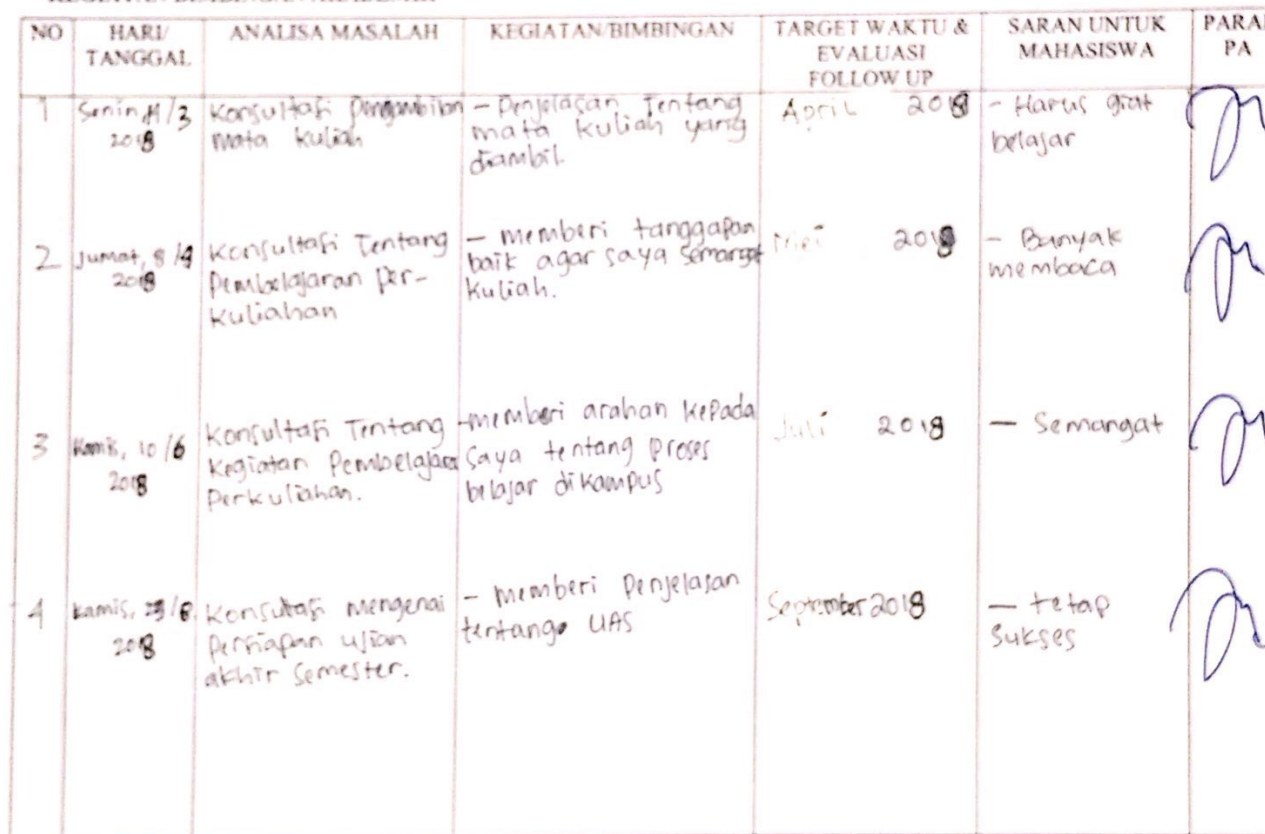 NO
HARI/
TANGGAL
ANALISA MASALAH
KEGIATAN/BIMBINGAN
TARGET WAKTU &
EVALUASI
FOLLOW UP
SARAN UNTUK
MAHASISWA
PARAF
PA
1
Senin /3
2018
Konsultasi Pengambilan
mata kuliah
- Penjelasan Tentang
mata kuliah yang
diambil.
April 2018
- Harus giat
belajar
2
Jumat, 8/4
2018
Konsultasi Tentang
Pembelajaran Per-
kuliahan
- memberi tanggapan
baik agar saya semangat
kuliah.
Mei 2018
- Banyak
membaca
3
Kamis, 10/6
2018
Konsultasi Tentang
kegiatan Pembelajaran
Perkuliahan.
-memberi arahan kepada
saya tentang proses
belajar di kampus
Juli 2018
- Semangat
4
Kamis,
2018
Konsultasi mengenai
Persiapan ujian
akhir semester.
- memberi Penjelasan
tentang UAS
September 2018
- tetap
sukses